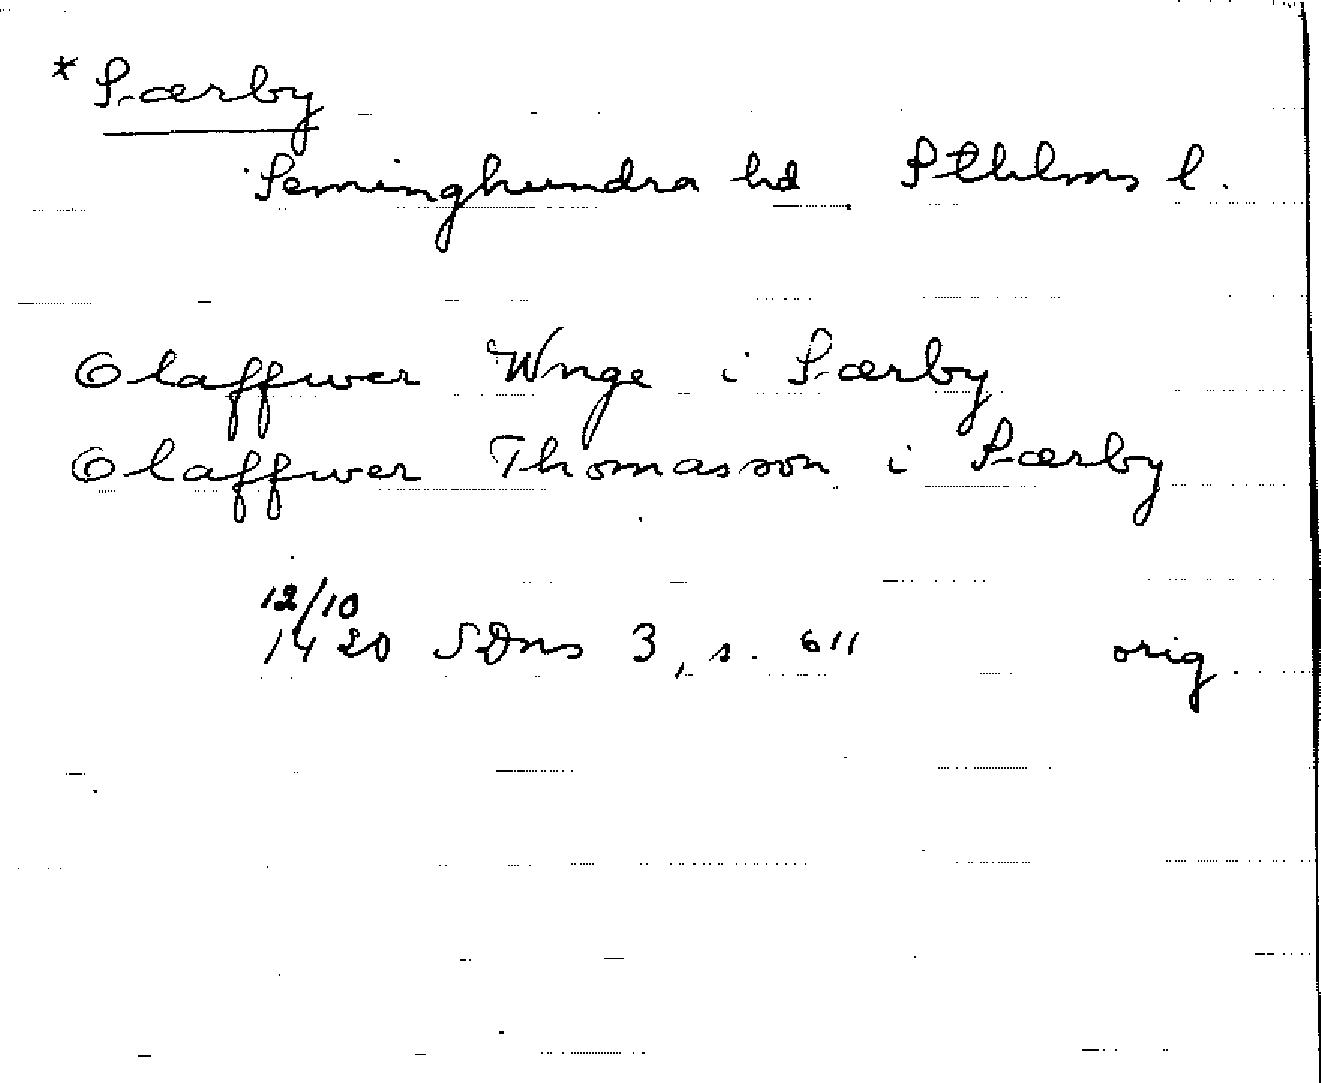 * Særby
Seminghundra hd Sthlms l.
Olaffwer Wnge i Særby
Olaffwer Thomasson i Særby
12/10
1420 SDns 3, s. 611 orig.